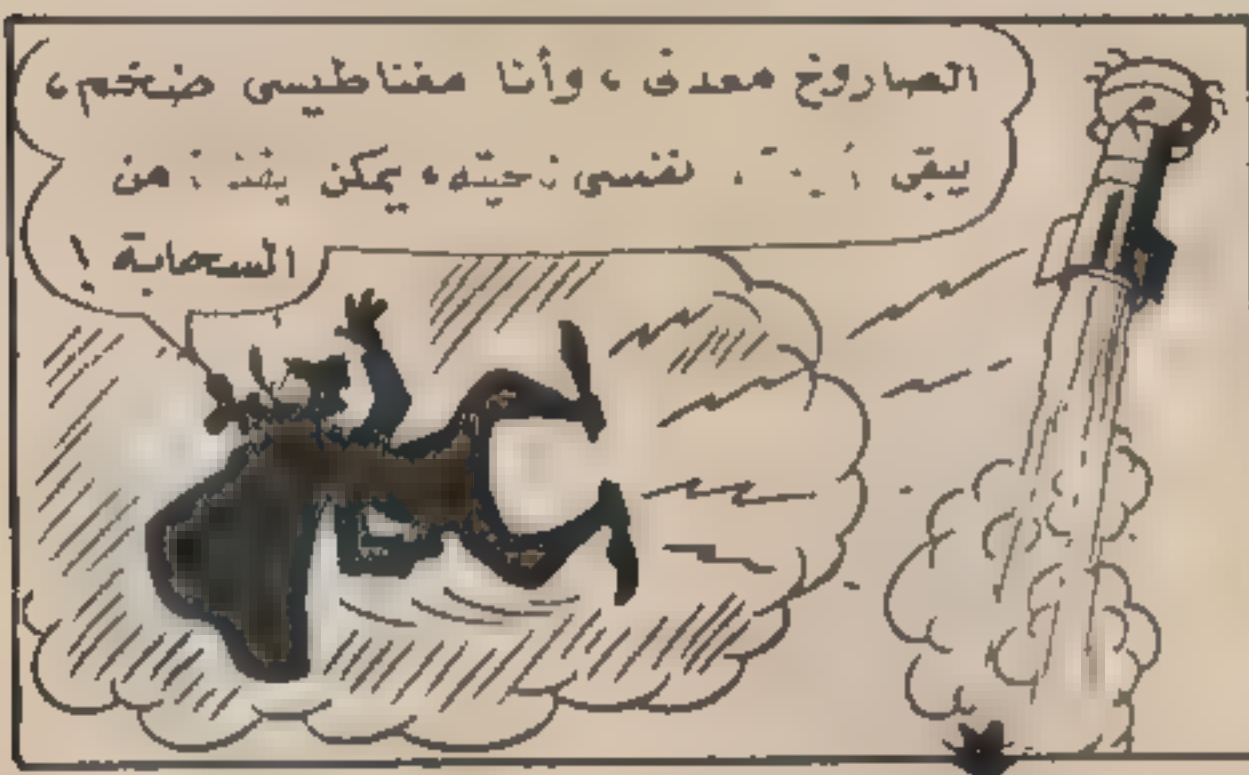 الصاروخ معدن ، وأنا مغناطيسى ضخم ،
يبقى نفسى ناحيته ، يمكن من
السحابة !